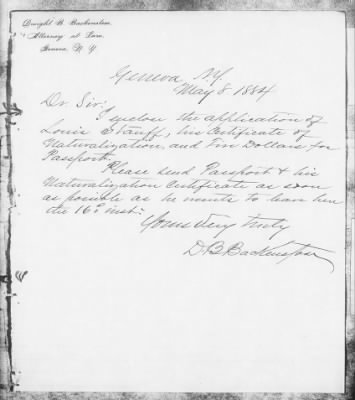 Dwight B. Backenstose,
Attorney at Law,
Geneva, N. Y.
Geneva, N.Y.
May 8 1884
Dr Sir:
I enclose the application of
Louis Stauff, his Certificate of
Naturalization, and Five Dollars for
Passport.
Please send Passport & his
Naturalization Certificate as soon
as possible as he wants to leave here
the 16° inst:
Yours Very truly
D. B. Backenstose